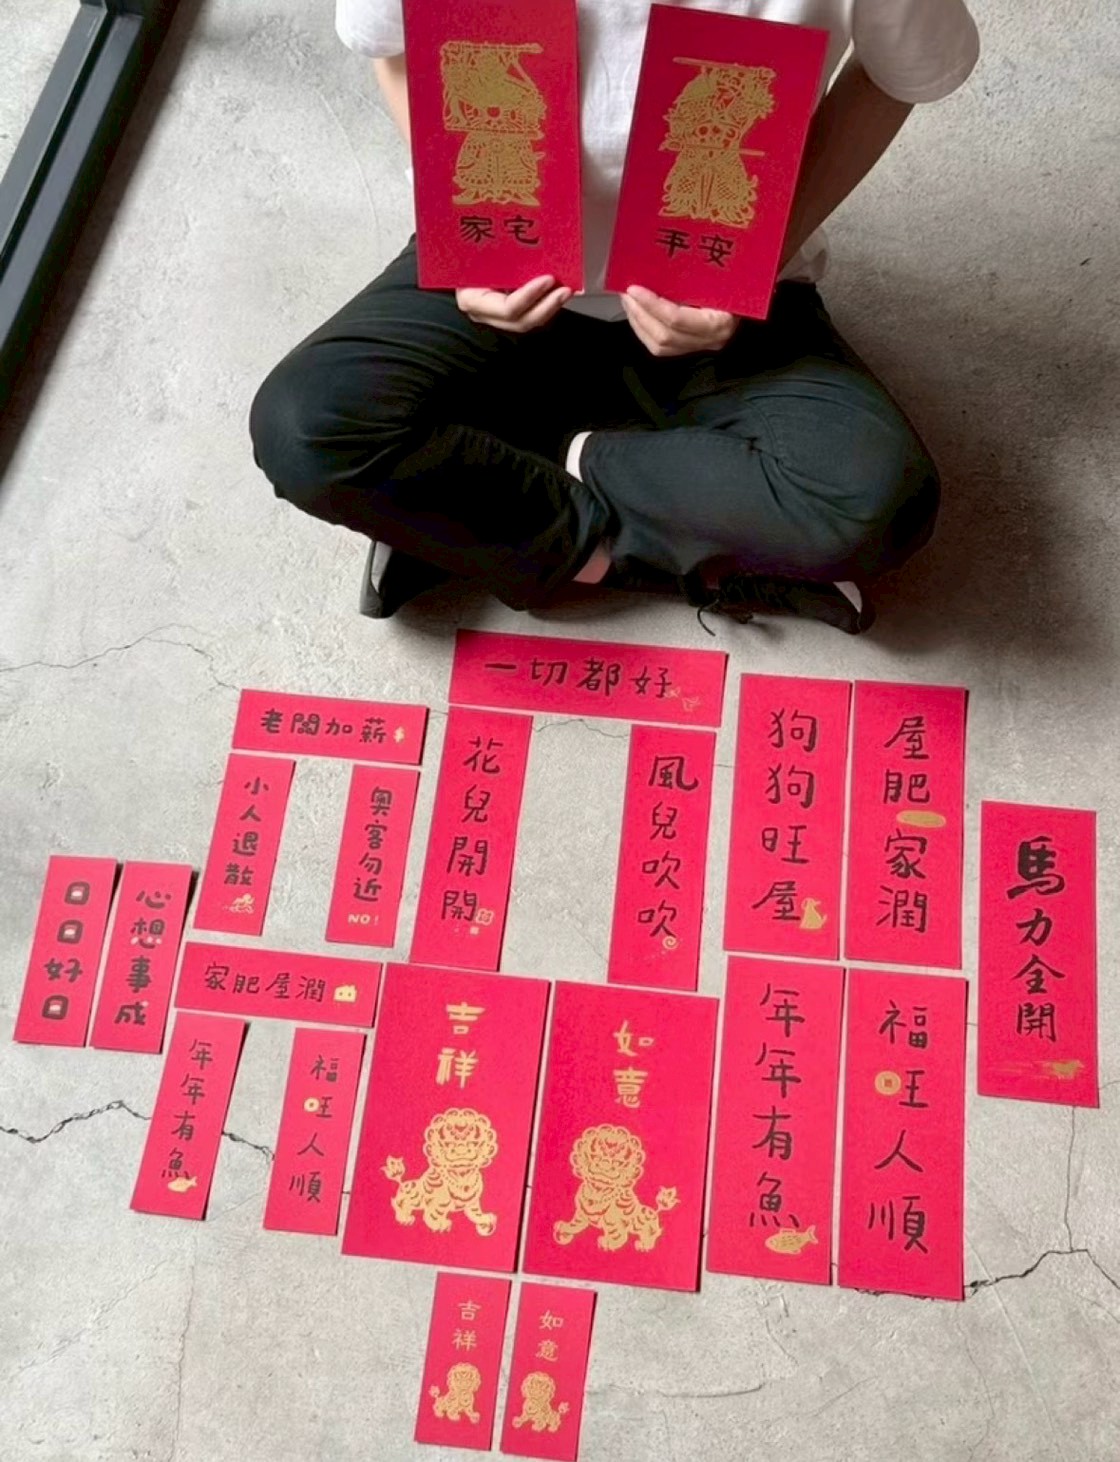 家宅
平安
一切都好
花兒開開
風兒吹吹
老闆加薪
小人退散
奧客勿近
NO!
狗狗旺屋
屋肥家潤
馬力全開
日日好日
心想事成
家肥屋潤
年年有魚
福旺人順
吉祥
如意
年年有魚
福旺人順
吉祥
如意